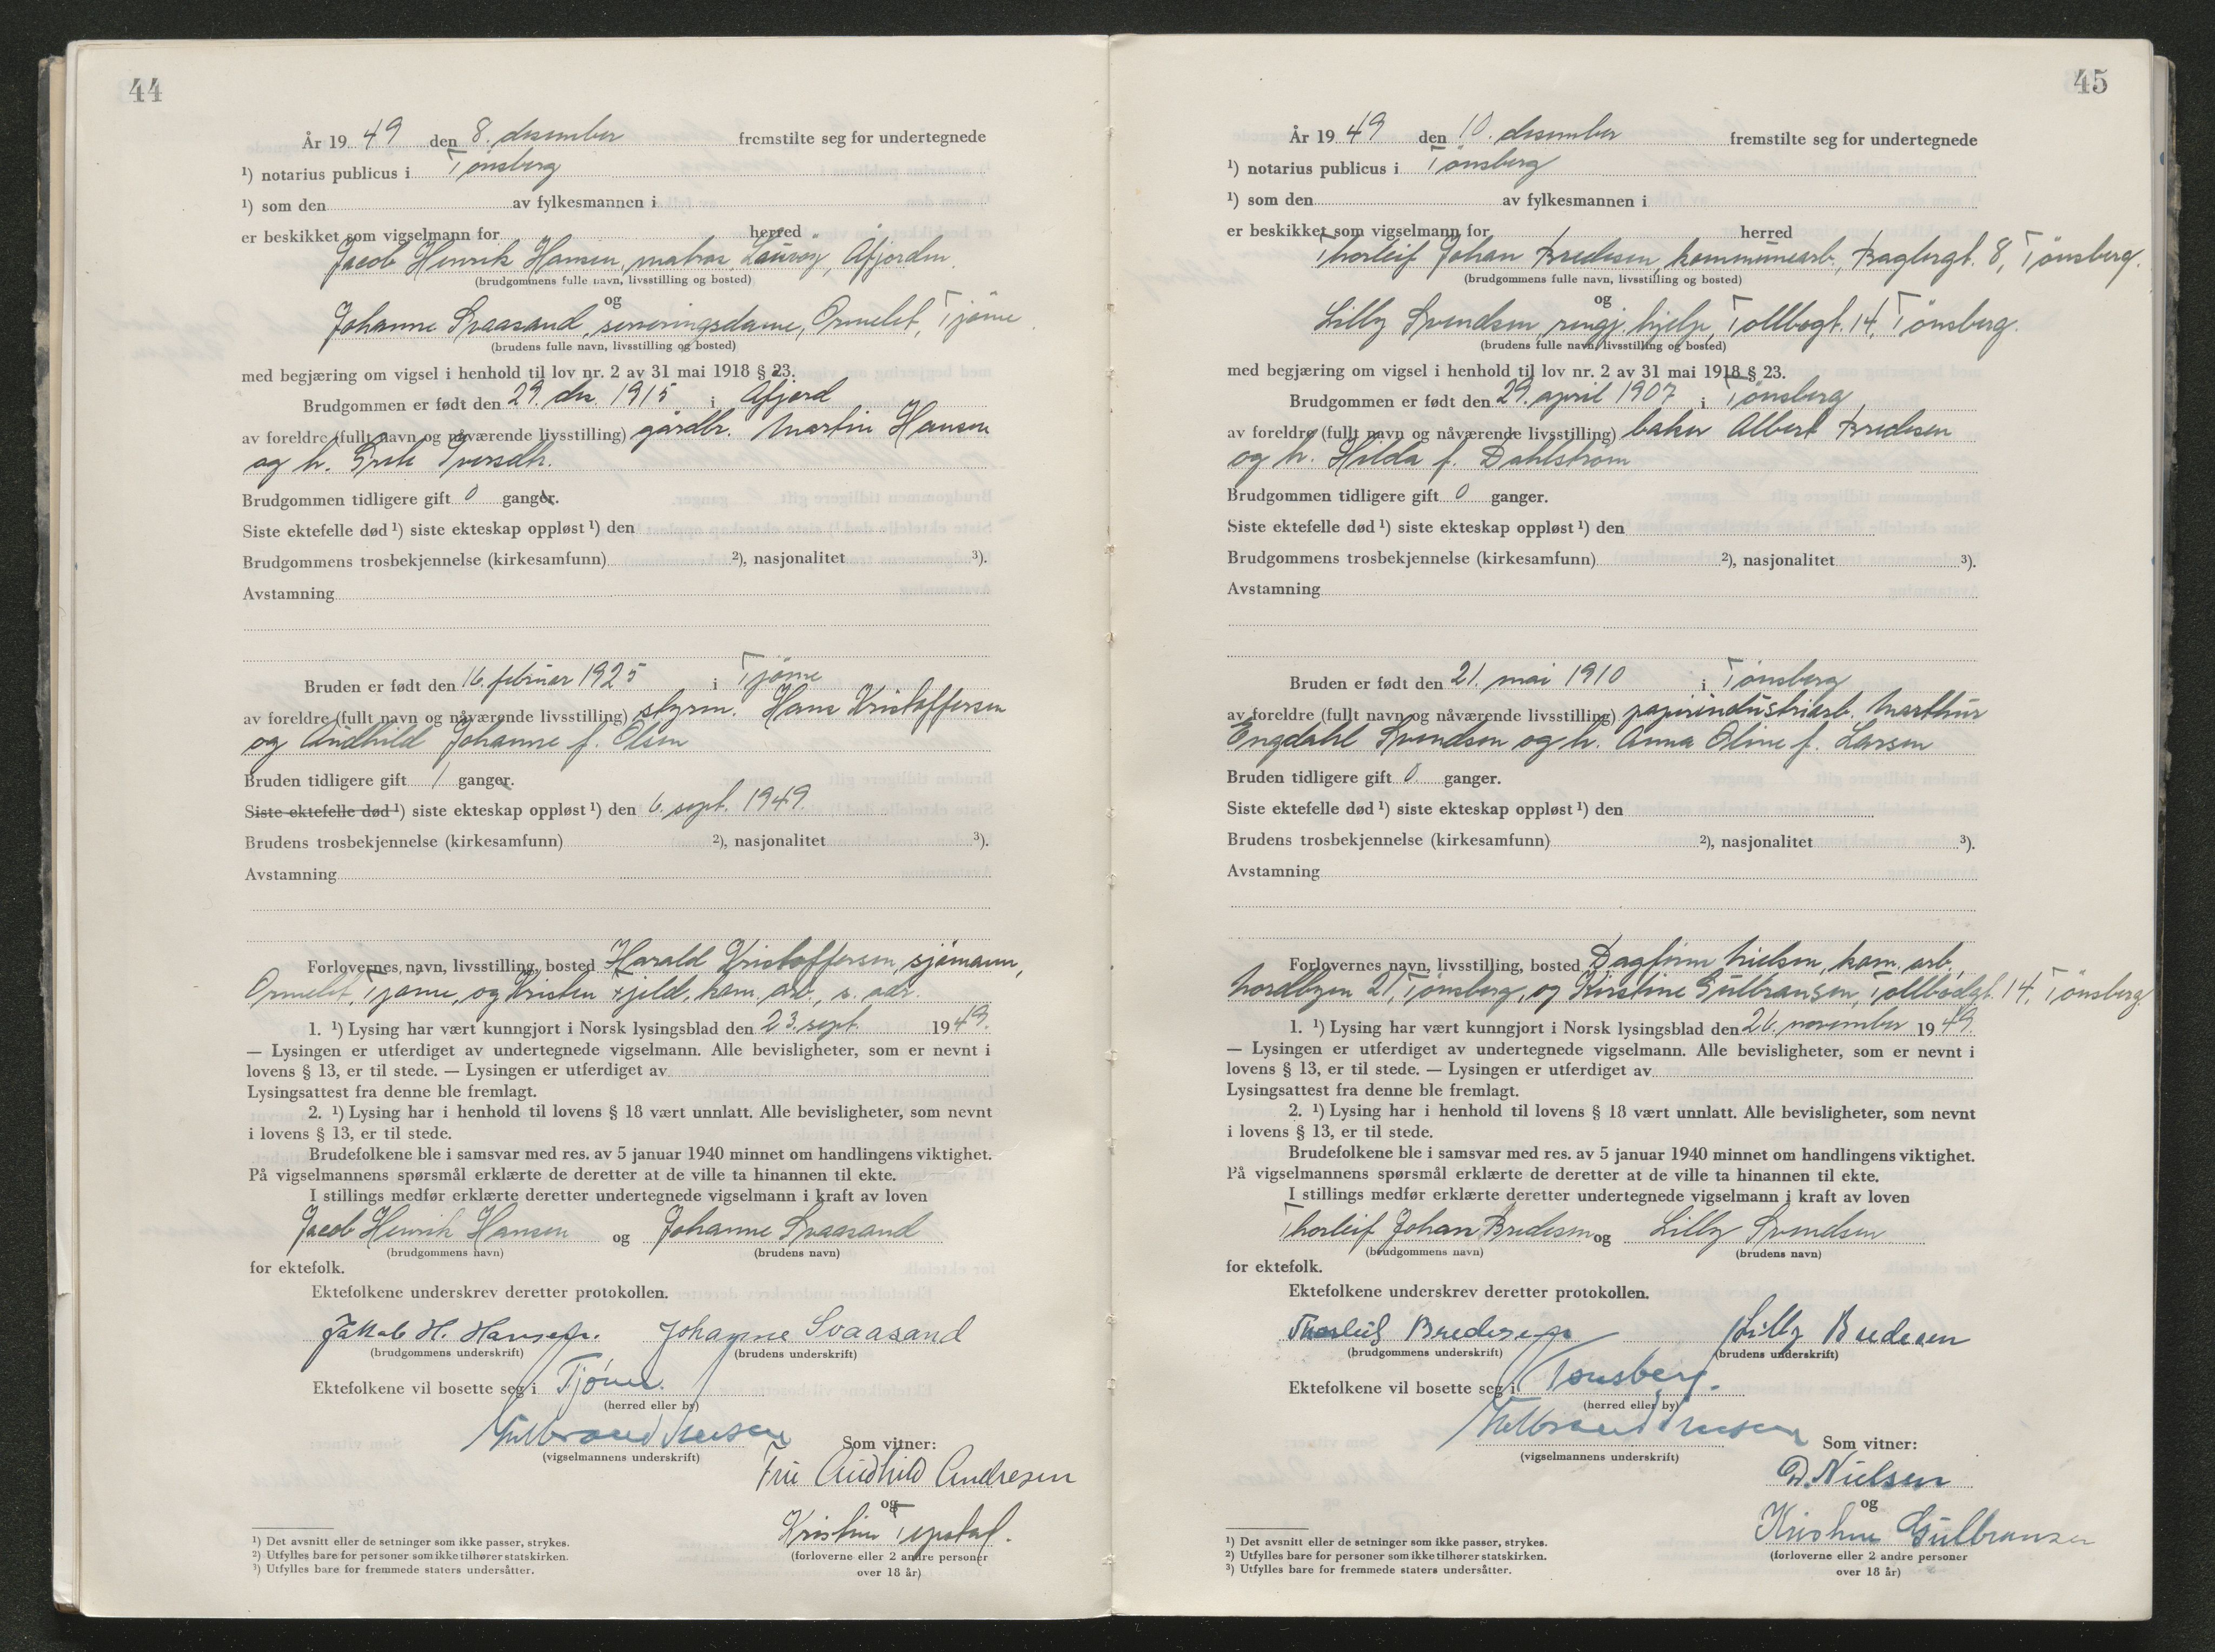 44
År 19 49 den 8. desember fremstilte seg for undertegnede
¹) notarius publicus i Tønsberg
¹) som den av fylkesmannen i
er beskikket som vigselmann for herred
Jacob Henrik Hansen, matros, Lauvøy, Åfjorden.
(brudgommens fulle navn, livsstilling og bosted)
og
Johanne Svaasand, serveringsdame, Ormelet, Tjøme
(brudens fulle navn, livsstilling og bosted)
med begjæring om vigsel i henhold til lov nr. 2 av 31 mai 1918 § 23.
Brudgommen er født den 29. des. 1915 i Åfjord
av foreldre (fullt navn og nåværende livsstilling) gårdbr. Martin Hansen
og h. Grete Iversdtr.
Brudgommen tidligere gift 0 ganger.
Siste ektefelle død ¹) siste ekteskap oppløst ¹) den
Brudgommens trosbekjennelse (kirkesamfunn) ²), nasjonalitet ³).
Avstamning
Bruden er født den 16. februar 1925 i Tjøme
av foreldre (fullt navn og nåværende livsstilling) styrm. Hans Kristoffersen
og Audhild Johanne f. Olsen
Bruden tidligere gift 1 ganger.
Siste ektefelle død ¹) siste ekteskap oppløst ¹) den 6. sept. 1949.
Brudens trosbekjennelse (kirkesamfunn) ²), nasjonalitet ³).
Avstamning
Forlovernes navn, livsstilling, bosted Harald Kristoffersen, sjømann,
Ormelet, Tjøme, og Kristen kom. arb., s. adr.
1. ¹) Lysing har vært kunngjort i Norsk lysingsblad den 23. sept. 1949.
— Lysingen er utferdiget av undertegnede vigselmann. Alle bevisligheter, som er nevnt i
lovens § 13, er til stede. — Lysingen er utferdiget av
Lysingsattest fra denne ble fremlagt.
2. ¹) Lysing har i henhold til lovens § 18 vært unnlatt. Alle bevisligheter, som nevnt
i lovens § 13, er til stede.
Brudefolkene ble i samsvar med res. av 5 januar 1940 minnet om handlingens viktighet.
På vigselmannens spørsmål erklærte de deretter at de ville ta hinannen til ekte.
I stillings medfør erklærte deretter undertegnede vigselmann i kraft av loven
Jacob Henrik Hansen og Johanne Svaasand
(brudgommens navn) (brudens navn)
for ektefolk.
Ektefolkene underskrev deretter protokollen.
Jakob H. Hansen. Johanne Svaasand
(brudgommens underskrift) (brudens underskrift)
Ektefolkene vil bosette seg i Tjöme.
(herred eller by)
(vigselmannens underskrift)
Som vitner:
Fru Audhild Andresen
og
Kristin
(forloverne eller 2 andre personer
over 18 år)
¹) Det avsnitt eller de setninger som ikke passer, strykes.
²) Utfylles bare for personer som ikke tilhører statskirken.
³) Utfylles bare for fremmede staters undersåtter.
45
År 19 49 den 10. desember fremstilte seg for undertegnede
¹) notarius publicus i Tønsberg
¹) som den av fylkesmannen i
er beskikket som vigselmann for herred
Thorleif Johan Bredesen, kommunearb., Baglergt. 8, Tønsberg.
(brudgommens fulle navn, livsstilling og bosted)
og
Lilly Svendsen, rengj. hjelp Tollbogt. 14, Tønsberg.
(brudens fulle navn, livsstilling og bosted)
med begjæring om vigsel i henhold til lov nr. 2 av 31 mai 1918 § 23.
Brudgommen er født den 29. april 1907 i Tønsberg
av foreldre (fullt navn og nåværende livsstilling) baker Albert Bredesen
og h. Hilda f. Dahlstrøm
Brudgommen tidligere gift 0 ganger.
Siste ektefelle død ¹) siste ekteskap oppløst ¹) den
Brudgommens trosbekjennelse (kirkesamfunn) ²), nasjonalitet ³).
Avstamning
Bruden er født den 21. mai 1910 i Tønsberg
av foreldre (fullt navn og nåværende livsstilling) papirindustriarb. Marthur
Engdahl Svendsen og h. Anna Oline f. Larsen
Bruden tidligere gift 0 ganger.
Siste ektefelle død ¹) siste ekteskap oppløst ¹) den
Brudens trosbekjennelse (kirkesamfunn) ²), nasjonalitet ³).
Avstamning
Forlovernes navn, livsstilling, bosted Dagfinn Nielsen, kom. arb.,
Nordbyen 21, Tønsberg, og Kirstine Gulbransen, Tollbodgt. 14, Tønsberg
1. ¹) Lysing har vært kunngjort i Norsk lysingsblad den 26. november 1949.
— Lysingen er utferdiget av undertegnede vigselmann. Alle bevisligheter, som er nevnt i
lovens § 13, er til stede. — Lysingen er utferdiget av
Lysingsattest fra denne ble fremlagt.
2. ¹) Lysing har i henhold til lovens § 18 vært unnlatt. Alle bevisligheter, som nevnt
i lovens § 13, er til stede.
Brudefolkene ble i samsvar med res. av 5 januar 1940 minnet om handlingens viktighet.
På vigselmannens spørsmål erklærte de deretter at de ville ta hinannen til ekte.
I stillings medfør erklærte deretter undertegnede vigselmann i kraft av loven
Thorleif Johan Bredesen og Lilly Svendsen
(brudgommens navn) (brudens navn)
for ektefolk.
Ektefolkene underskrev deretter protokollen.
Thorleif Bredesen Lilly Bredesen
(brudgommens underskrift) (brudens underskrift)
Ektefolkene vil bosette seg i Tønsberg.
(herred eller by)
(vigselmannens underskrift)
Som vitner:
D. Nielsen
og
Kristine Gulbransen
(forloverne eller 2 andre personer
over 18 år)
¹) Det avsnitt eller de setninger som ikke passer, strykes.
²) Utfylles bare for personer som ikke tilhører statskirken.
³) Utfylles bare for fremmede staters undersåtter.